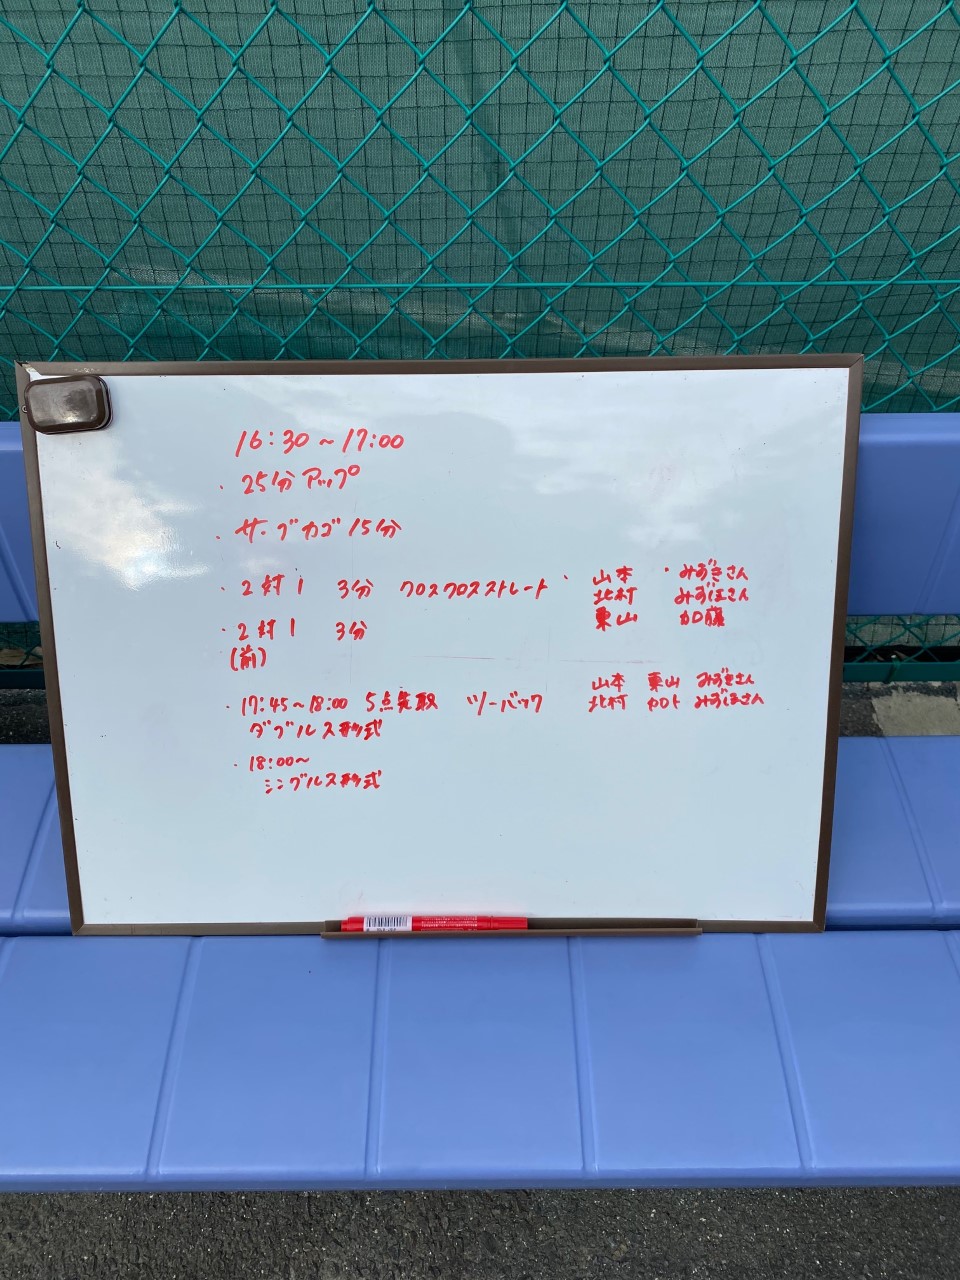 16:30～17:00
・25分アップ
・サーブカゴ 15分
・2対1 3分 クロスクロスストレート ・山本 ・みずきさん
北村 みずほさん
東山 加藤
・2対1 3分
(前)
・17:45～18:00 5点先取 ツーバック 山本 東山 みずきさん
ダブルス形式 北村 カロト みずほさん
・18:00～
シングルス形式